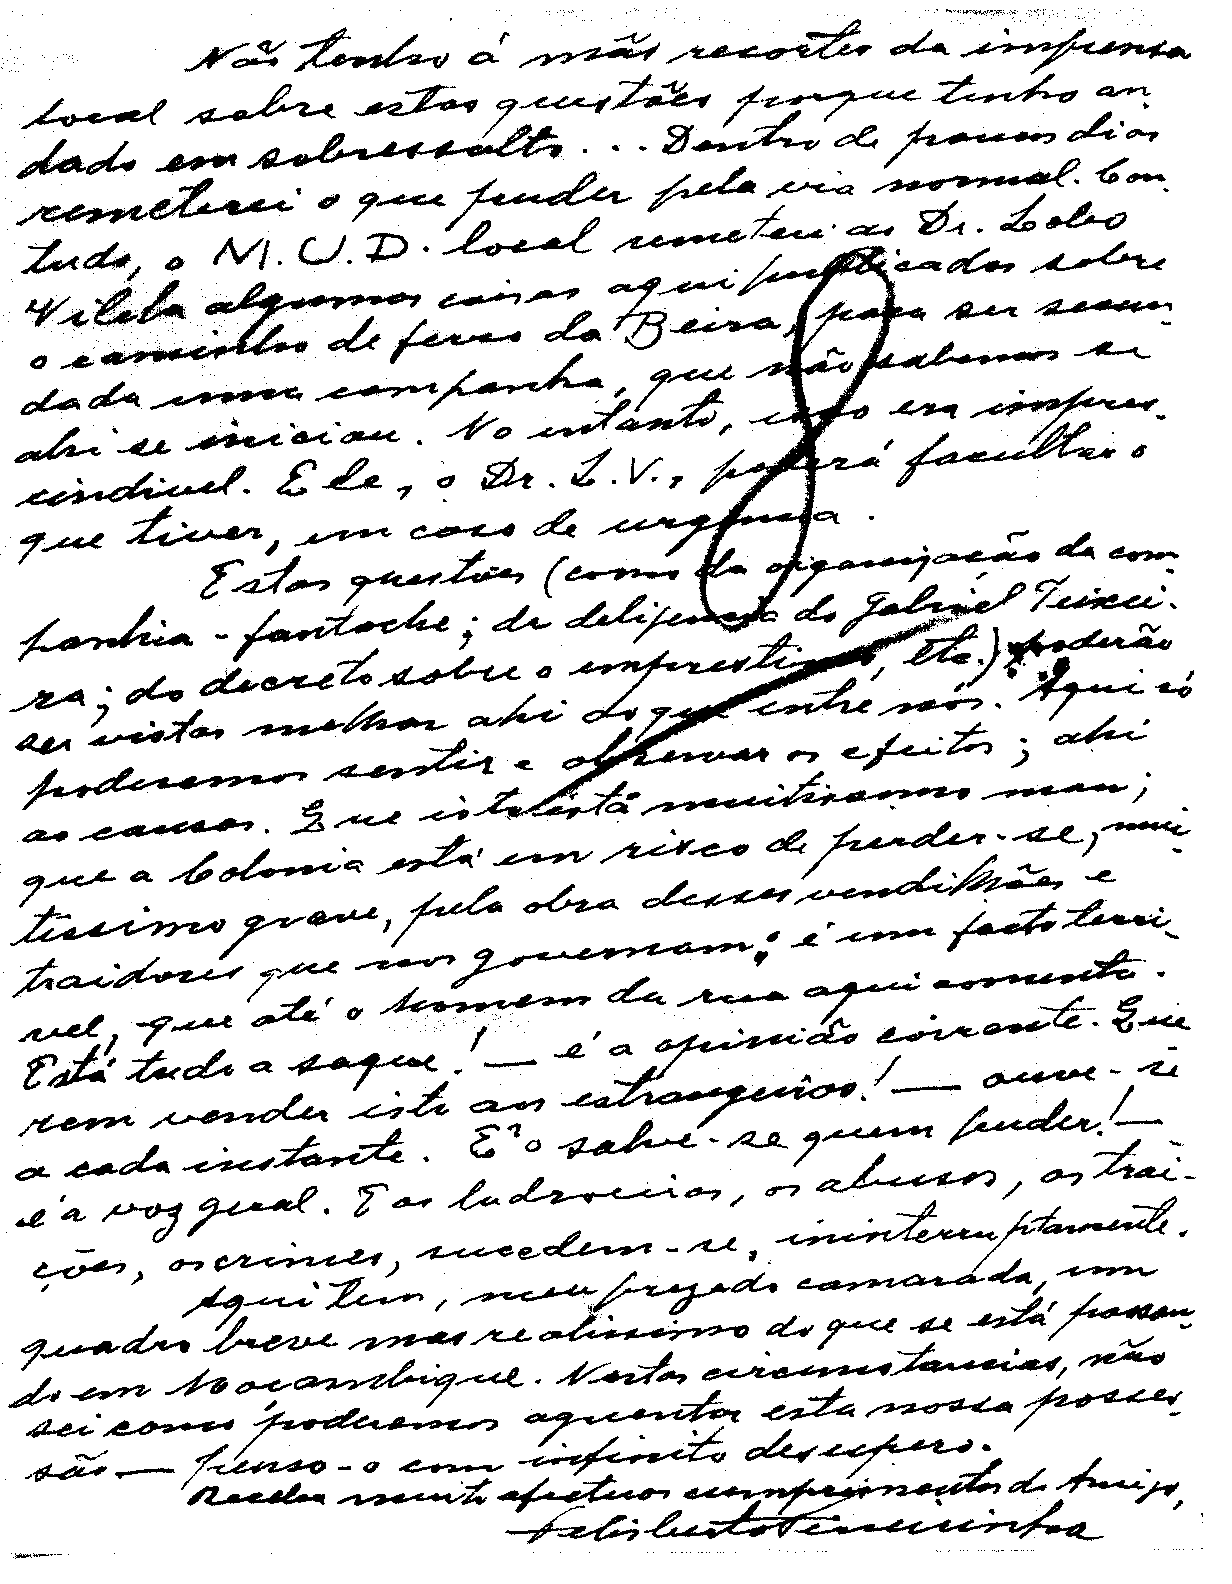 Não tenho á mão recortes da imprensa
local sobre estas questões porque tenho an-
dado em sobressalto... Dentro de poucos dias
remeterei o que puder pela via normal. Con-
tudo, o M.U.D. local remeteu ao Dr. Lobo
Vilela algumas coisas aqui publicadas sobre
o caminho de ferro da Beira, para ser secun-
dada uma campanha, que não sabemos se
ahi se iniciou. No entanto, isso era impres-
cindivel. Ele, o Dr. L.V., poderá facultar o
que tiver, em caso de urgencia.
Estas questões (como da organização da com-
panhia-fantoche; da deligencia do Gabriel Teixei-
ra; do decreto sobre o emprestimo, etc.) poderão
ser vistas melhor ahi do que entre nós. Aqui só
poderemos sentir e observar os efeitos; ahi
as causas. Que isto está muitissimo mau;
que a Colonia está em risco de perder-se, mui-
tissimo grave, pela obra desses vendilhões e
traidores que nos governam; é um facto terri-
vel, que até o homem da rua aqui comenta.
Está tudo a saque! — é a opinião corrente. Que-
rem vender isto aos estrangeiros! — ouve-se
a cada instante. E' o salve-se quem puder! —
é a voz geral. E as ladroeiras, os abusos, as trai-
ções, os crimes, sucedem-se, ininterruptamente.
Aqui tem, meu prezado camarada, um
quadro breve mas realissimo do que se está passan-
do em Moçambique. Nestas circumstancias, não
sei como poderemos aguentar esta nossa posses-
são — penso-o com infinito desespero.
Receba muito afectuosos cumprimentos do Amigo,
Felisberto Ferreirinha